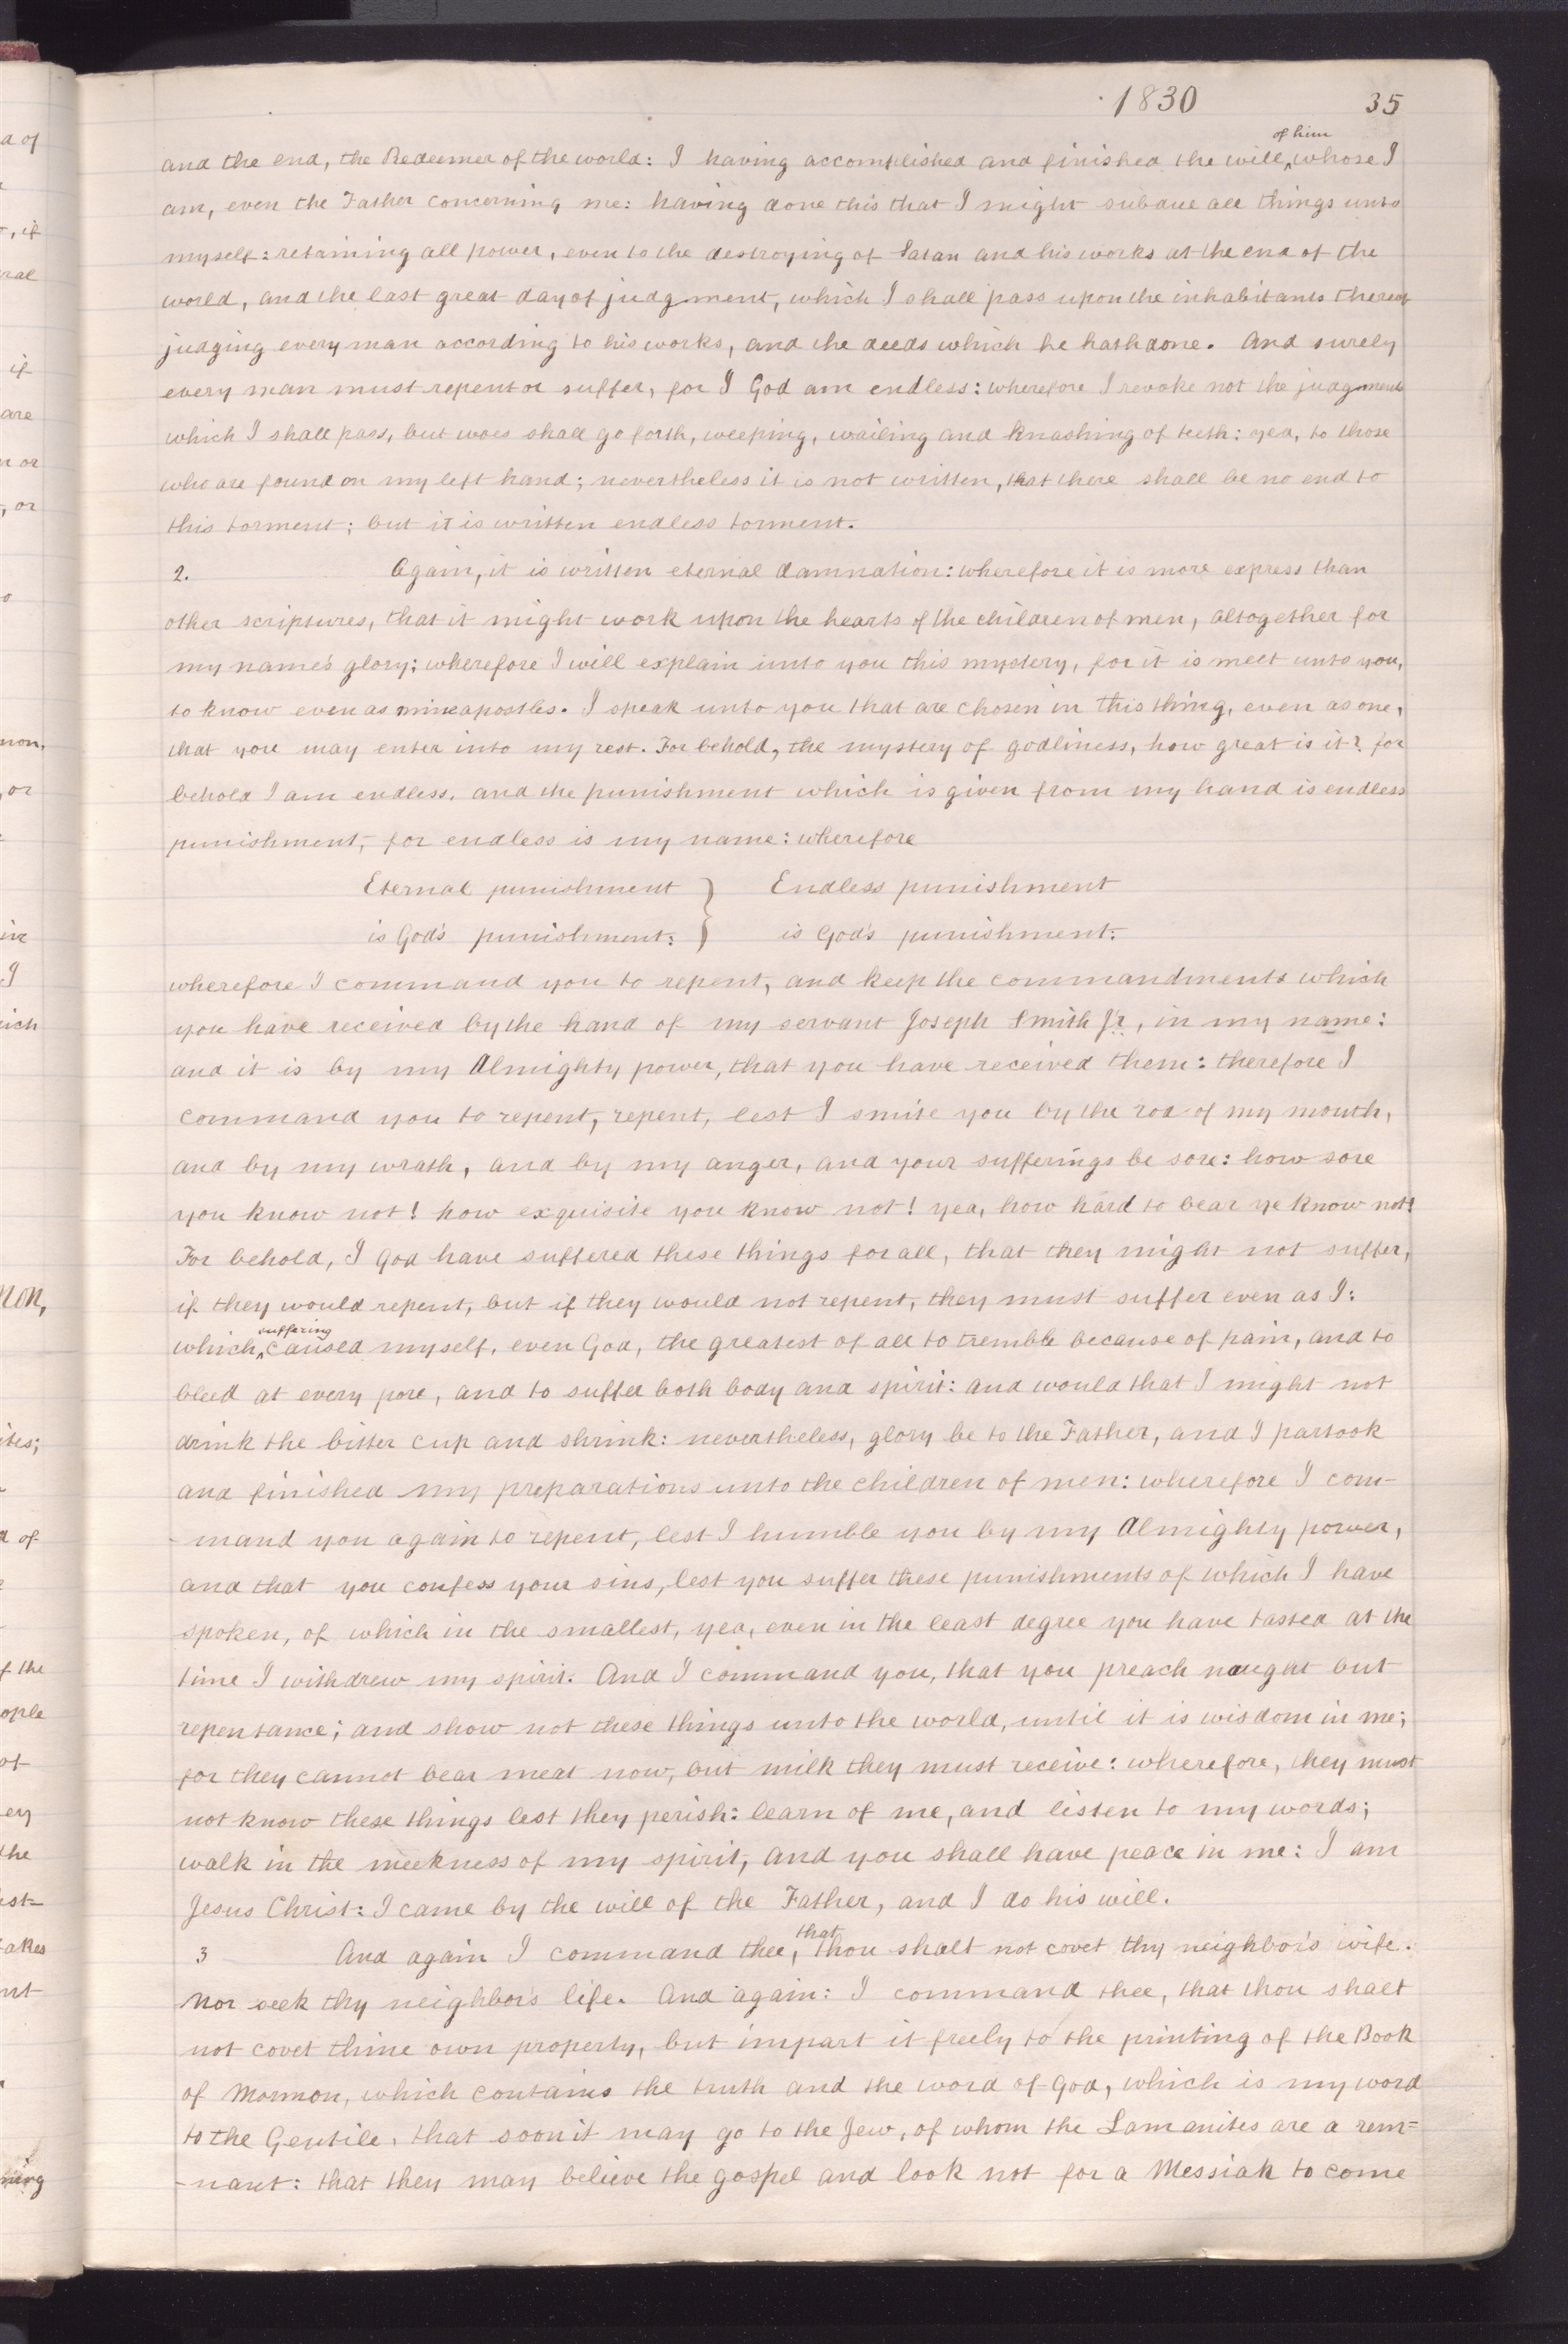 1830 35
and the end, the Redeemer of the world: I having accomplished and finished the will ^of him whose I
am, even the Father concerning me: having done this that I might subdue all things unto
myself: retaining all power, even to the destroying of Satan and his works at the end of the
world, and the last great day of judgment, which I shall pass upon the inhabitants thereof
judging every man according to his works, and the deeds which he hath done. And surely
every man must repent or suffer, for I God am endless: wherefore I revoke not the judgments
which I shall pass, but woes shall go forth, weeping, wailing and knashing of teeth: yea, to those
who are found on my left hand; nevertheless it is not written, that there shall be no end to
this torment; but it is written endless torment.
2. Again, it is written eternal damnation: wherefore it is more express than
other scriptures, that it might work upon the hearts of the children of men, altogether for
my name's glory; wherefore I will explain unto you this mystery, for it is meet unto you,
to know even as mine apostles. I speak unto you that are chosen in this thing, even as one,
that you may enter into my rest. For behold, the mystery of godliness, how great is it? for
behold I am endless, and the punishment which is given from my hand is endless
punishment, for endless is my name: wherefore
Eternal punishment } Endless punishment
is God's punishment: } is God's punishment:
wherefore I command you to repent, and keep the commandments which
you have received by the hand of my servant Joseph Smith Jr, in my name:
and it is by my Almighty power, that you have received them: therefore I
command you to repent, repent, lest I smite you by the rod of my mouth,
and by my wrath, and by my anger, and your sufferings be sore: how sore
you know not! how exquisite you know not! yea, how hard to bear ye know not!
For behold, I God have suffered these things for all, that they might not suffer,
if they would repent, but if they would not repent, they must suffer even as I:
which ^suffering caused myself, even God, the greatest of all to tremble because of pain, and to
bleed at every pore, and to suffer both body and spirit: and would that I might not
drink the bitter cup and shrink: nevertheless, glory be to the Father, and I partook
and finished my preparations unto the children of men: wherefore I com-
-mand you again to repent, lest I humble you by my Almighty power,
and that you confess your sins, lest you suffer these punishments of which I have
spoken, of which in the smallest, yea, even in the least degree you have tasted at the
time I withdrew my spirit. And I command you, that you preach naught but
repentance; and show not these things unto the world, until it is wisdom in me;
for they cannot bear meat now, but milk they must receive: wherefore, they must
not know these things lest they perish: learn of me, and listen to my words;
walk in the meekness of my spirit, and you shall have peace in me: I am
Jesus Christ: I came by the will of the Father, and I do his will.
3 And again I command thee, that thou shalt not covet thy neighbor's wife.
Nor seek thy neighbor's life. And again: I command thee, that thou shalt
not covet thine own property, but impart it freely to the printing of the Book
of Mormon, which contains the truth and the word of God, which is my word
to the Gentile, that soon it may go to the Jew, of whom the Lamanites are a rem=
-nant: that they may believe the gospel and look not for a Messiah to come